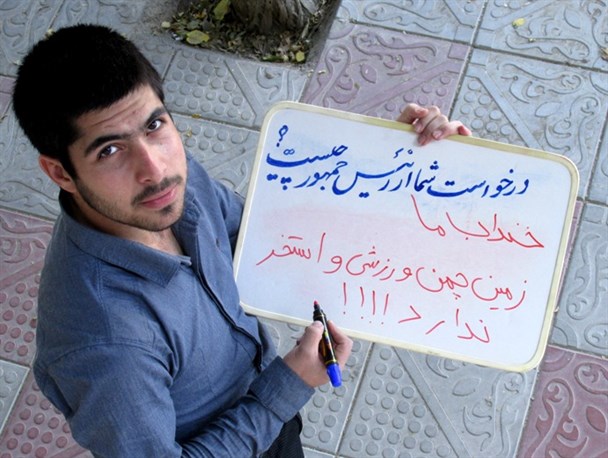 درخواست شما از رئیس جمهور چیست؟
خنداب ما
زمین چمن ورزشی و استخر
ندارد!!!!